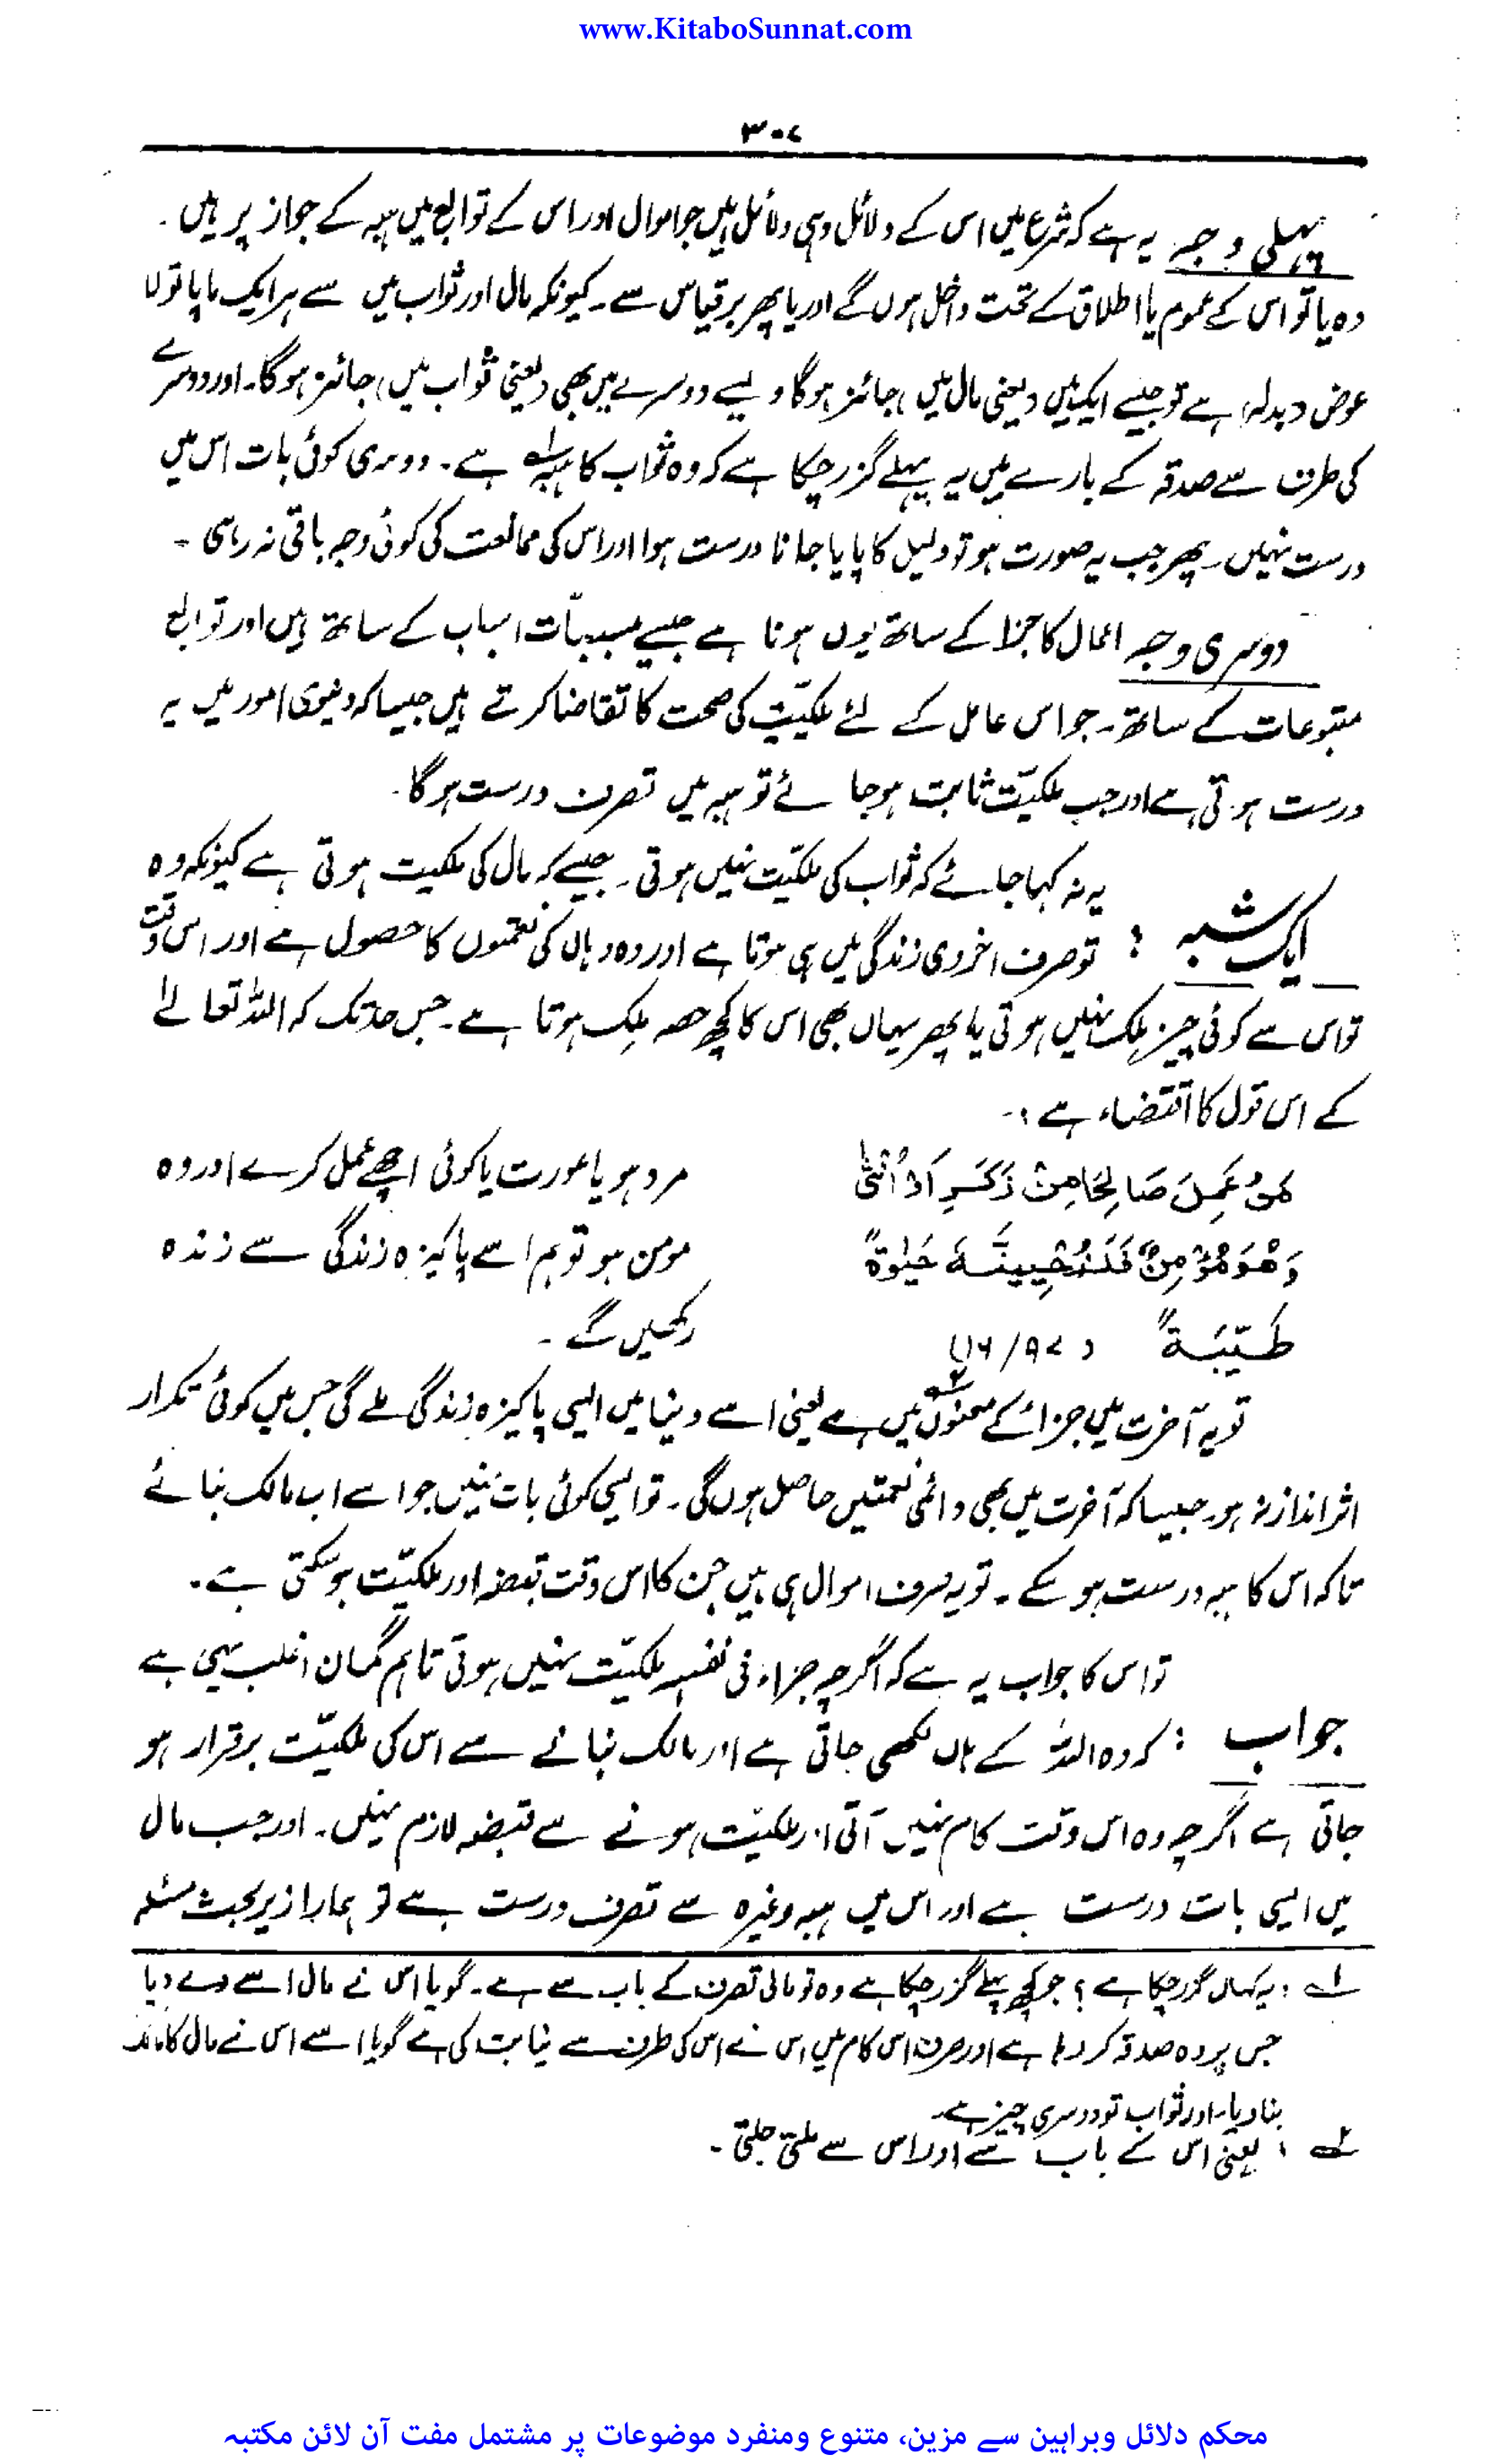 www.KitaboSunnat.com
۳۰۷
پہلی وجہ یہ ہے کہ شرع میں اس کے دلائل وہی دلائل ہیں جو اموال اور اس کے توابع میں ہبہ کے جواز پر ہیں۔
وہ یا تو اس کے عموم یا اطلاق کے تحت داخل ہوں گے اور یا پھر بر قیاس سے۔ کیونکہ مال اور ثواب میں سے ہر ایک ناپا تولا
عوض (بدلہ) ہے تو جیسے ایک میں (یعنی مال میں) جائز ہوگا ویسے دوسرے میں بھی (یعنی ثواب میں) جائز ہوگا۔ اور دوسرے
کی طرف سے صدقہ کے بارے میں یہ پہلے گزر چکا ہے کہ وہ ثواب کا ہبہ ۱؎ ہے۔ دوسری کوئی بات اس میں
درست نہیں۔ پھر جب یہ صورت ہو تو دلیل کا پایا جانا درست ہوا اور اس کی ممانعت کی کوئی وجہ باقی نہ رہی۔
دوسری وجہ اعمال کا جزا کے ساتھ یوں ہونا ہے جیسے مسببات اسباب کے ساتھ ہیں اور توابع
متبوعات کے ساتھ۔ جو اس عامل کے لئے ملکیّت کی صحت کا تقاضا کرتے ہیں جیسا کہ دنیوی امور میں یہ
درست ہوتی ہے اور جب ملکیّت ثابت ہو جائے تو ہبہ میں تصرف درست ہوگا۔
یہ نہ کہا جائے کہ ثواب کی ملکیّت نہیں ہوتی۔ جیسے کہ مال کی ملکیت ہوتی ہے کیونکہ وہ
ایک شبہ : تو صرف اخروی زندگی میں ہی ہوتا ہے اور وہ وہاں کی نعمتوں کا حصول ہے اور اس وقت
تو اس سے کوئی چیز ملک نہیں ہوتی یا پھر یہاں بھی اس کا کچھ حصہ مِلک ہوتا ہے۔ جس حد تک کہ اللہ تعالےٰ
کے اس قول کا اقتضاء ہے :۔
مَنْ عَمِلَ صَالِحًا مِنْ ذَكَرٍ اَوْ اُنْثٰى
مرد ہو یا عورت یا کوئی اچھے عمل کرے اور وہ
وَهُوَ مُؤْمِنٌ فَلَنُحْيِيَنَّهٗ حَيٰوةً
مومن ہو تو ہم اسے پاکیزہ زندگی سے زندہ
طَيِّبَةً (۱۶/۹۷)
رکھیں گے۔
تو یہ آخرت میں جزاء کے معنوں ۲؎ میں ہے یعنی اسے دنیا میں ایسی پاکیزہ زندگی ملے گی جس میں کوئی تکرار
اثر انداز نہ ہو۔ جیسا کہ آخرت میں بھی دائمی نعمتیں حاصل ہوں گی۔ تو ایسی کوئی بات نہیں جو اسے اب مالک بنائے
تاکہ اس کا ہبہ درست ہو سکے۔ تو یہ صرف اموال ہی ہیں جن کا اس وقت قبضہ اور ملکیّت ہو سکتی ہے۔
تو اس کا جواب یہ ہے کہ اگرچہ جزاء فی نفسہٖ ملکیّت نہیں ہوتی تاہم گمان اغلب یہی ہے
جواب : کہ وہ اللہ کے ہاں لکھی جاتی ہے اور مالک بنانے سے اس کی ملکیّت برقرار ہو
جاتی ہے اگرچہ وہ اس وقت کام نہیں آتی اور ملکیّت ہونے سے قبضہ لازم نہیں۔ اور جب مال
میں ایسی بات درست ہے اور اس میں ہبہ وغیرہ سے تصرف درست ہے تو ہمارا زیر بحث مسئلہ
۱؎ : یہ کہاں گزر چکا ہے ؟ جو کچھ پہلے گزر چکا ہے وہ تو مالی تصرف کے باب سے ہے۔ گویا اس نے مال اسے دے دیا
جس پر وہ صدقہ کر رہا ہے اور صرف اس کام میں اس نے اس کی طرف سے نیابت کی ہے گویا اسے اس نے مال کا مالک
بنا دیا۔ اور ثواب تو دوسری چیز ہے۔
۲؎ : یعنی اس کے باب سے اور اس سے ملتی جلتی۔
محکم دلائل وبراہین سے مزین، متنوع ومنفرد موضوعات پر مشتمل مفت آن لائن مکتبہ